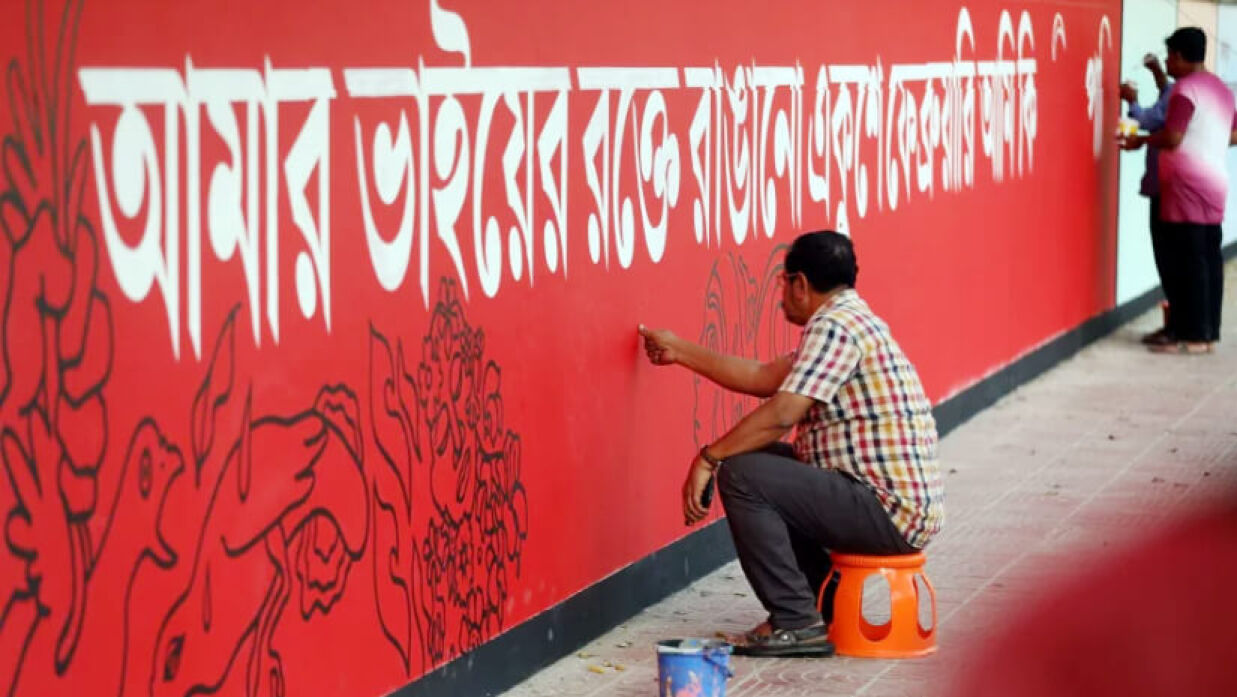 আমার ভাইয়ের রক্তে রাঙানো একুশে ফেব্রুয়ারি আমি কি